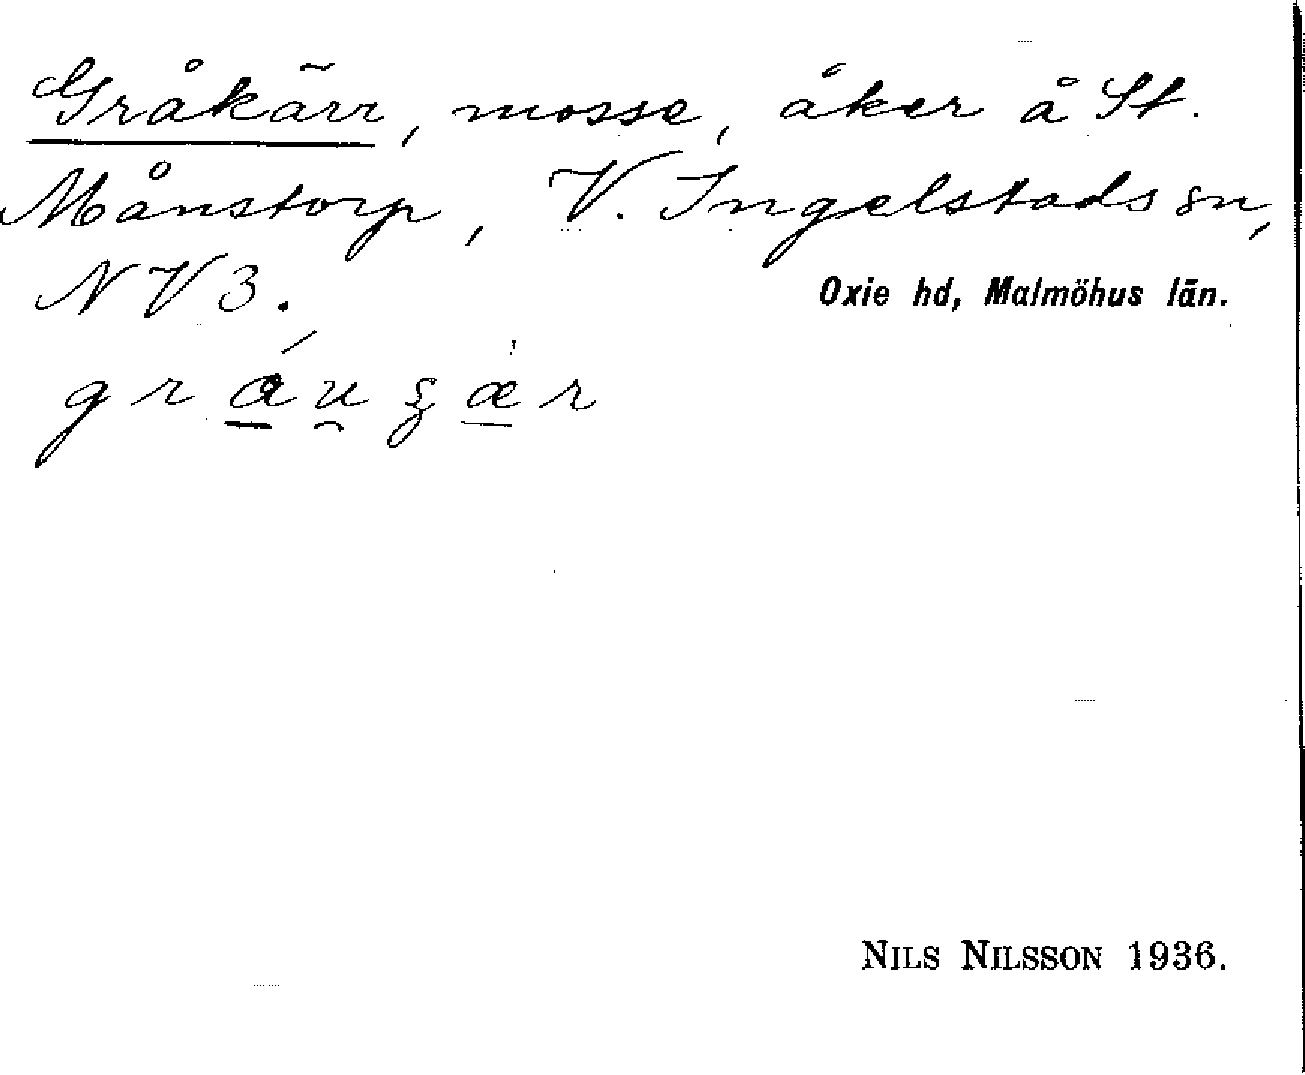 Gråkärr, mosse, åker å St.
Månstorp, V. Ingelstads sn,
NV 3.
Oxie hd, Malmöhus län.
gráu̯ʒær
NILS NILSSON 1936.